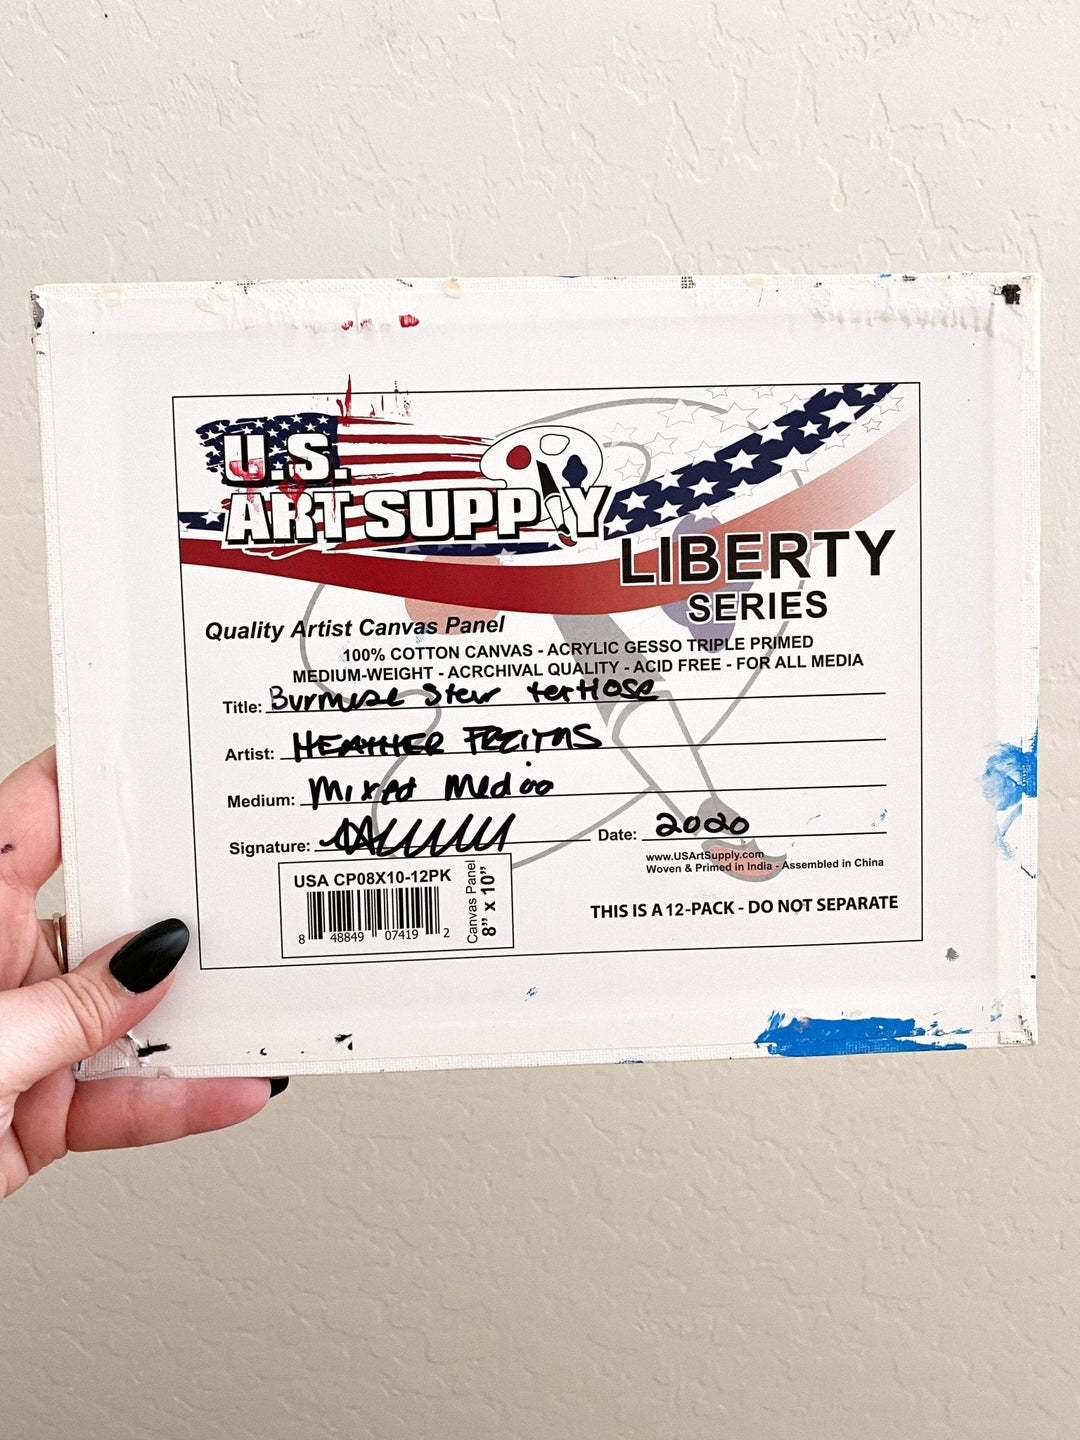 U.S.
ART SUPPLY
LIBERTY
SERIES
Quality Artist Canvas Panel
100% COTTON CANVAS - ACRYLIC GESSO TRIPLE PRIMED
MEDIUM-WEIGHT - ACRCHIVAL QUALITY - ACID FREE - FOR ALL MEDIA
Title: Burmese Star tortiose
Artist: HEATHER FREITAS
Medium: Mixed Media
Signature:
Date: 2020
www.USArtSupply.com
Woven & Primed in India - Assembled in China
USA CP08X10-12PK
Canvas Panel
8" x 10"
8 48849 07419 2
THIS IS A 12-PACK - DO NOT SEPARATE